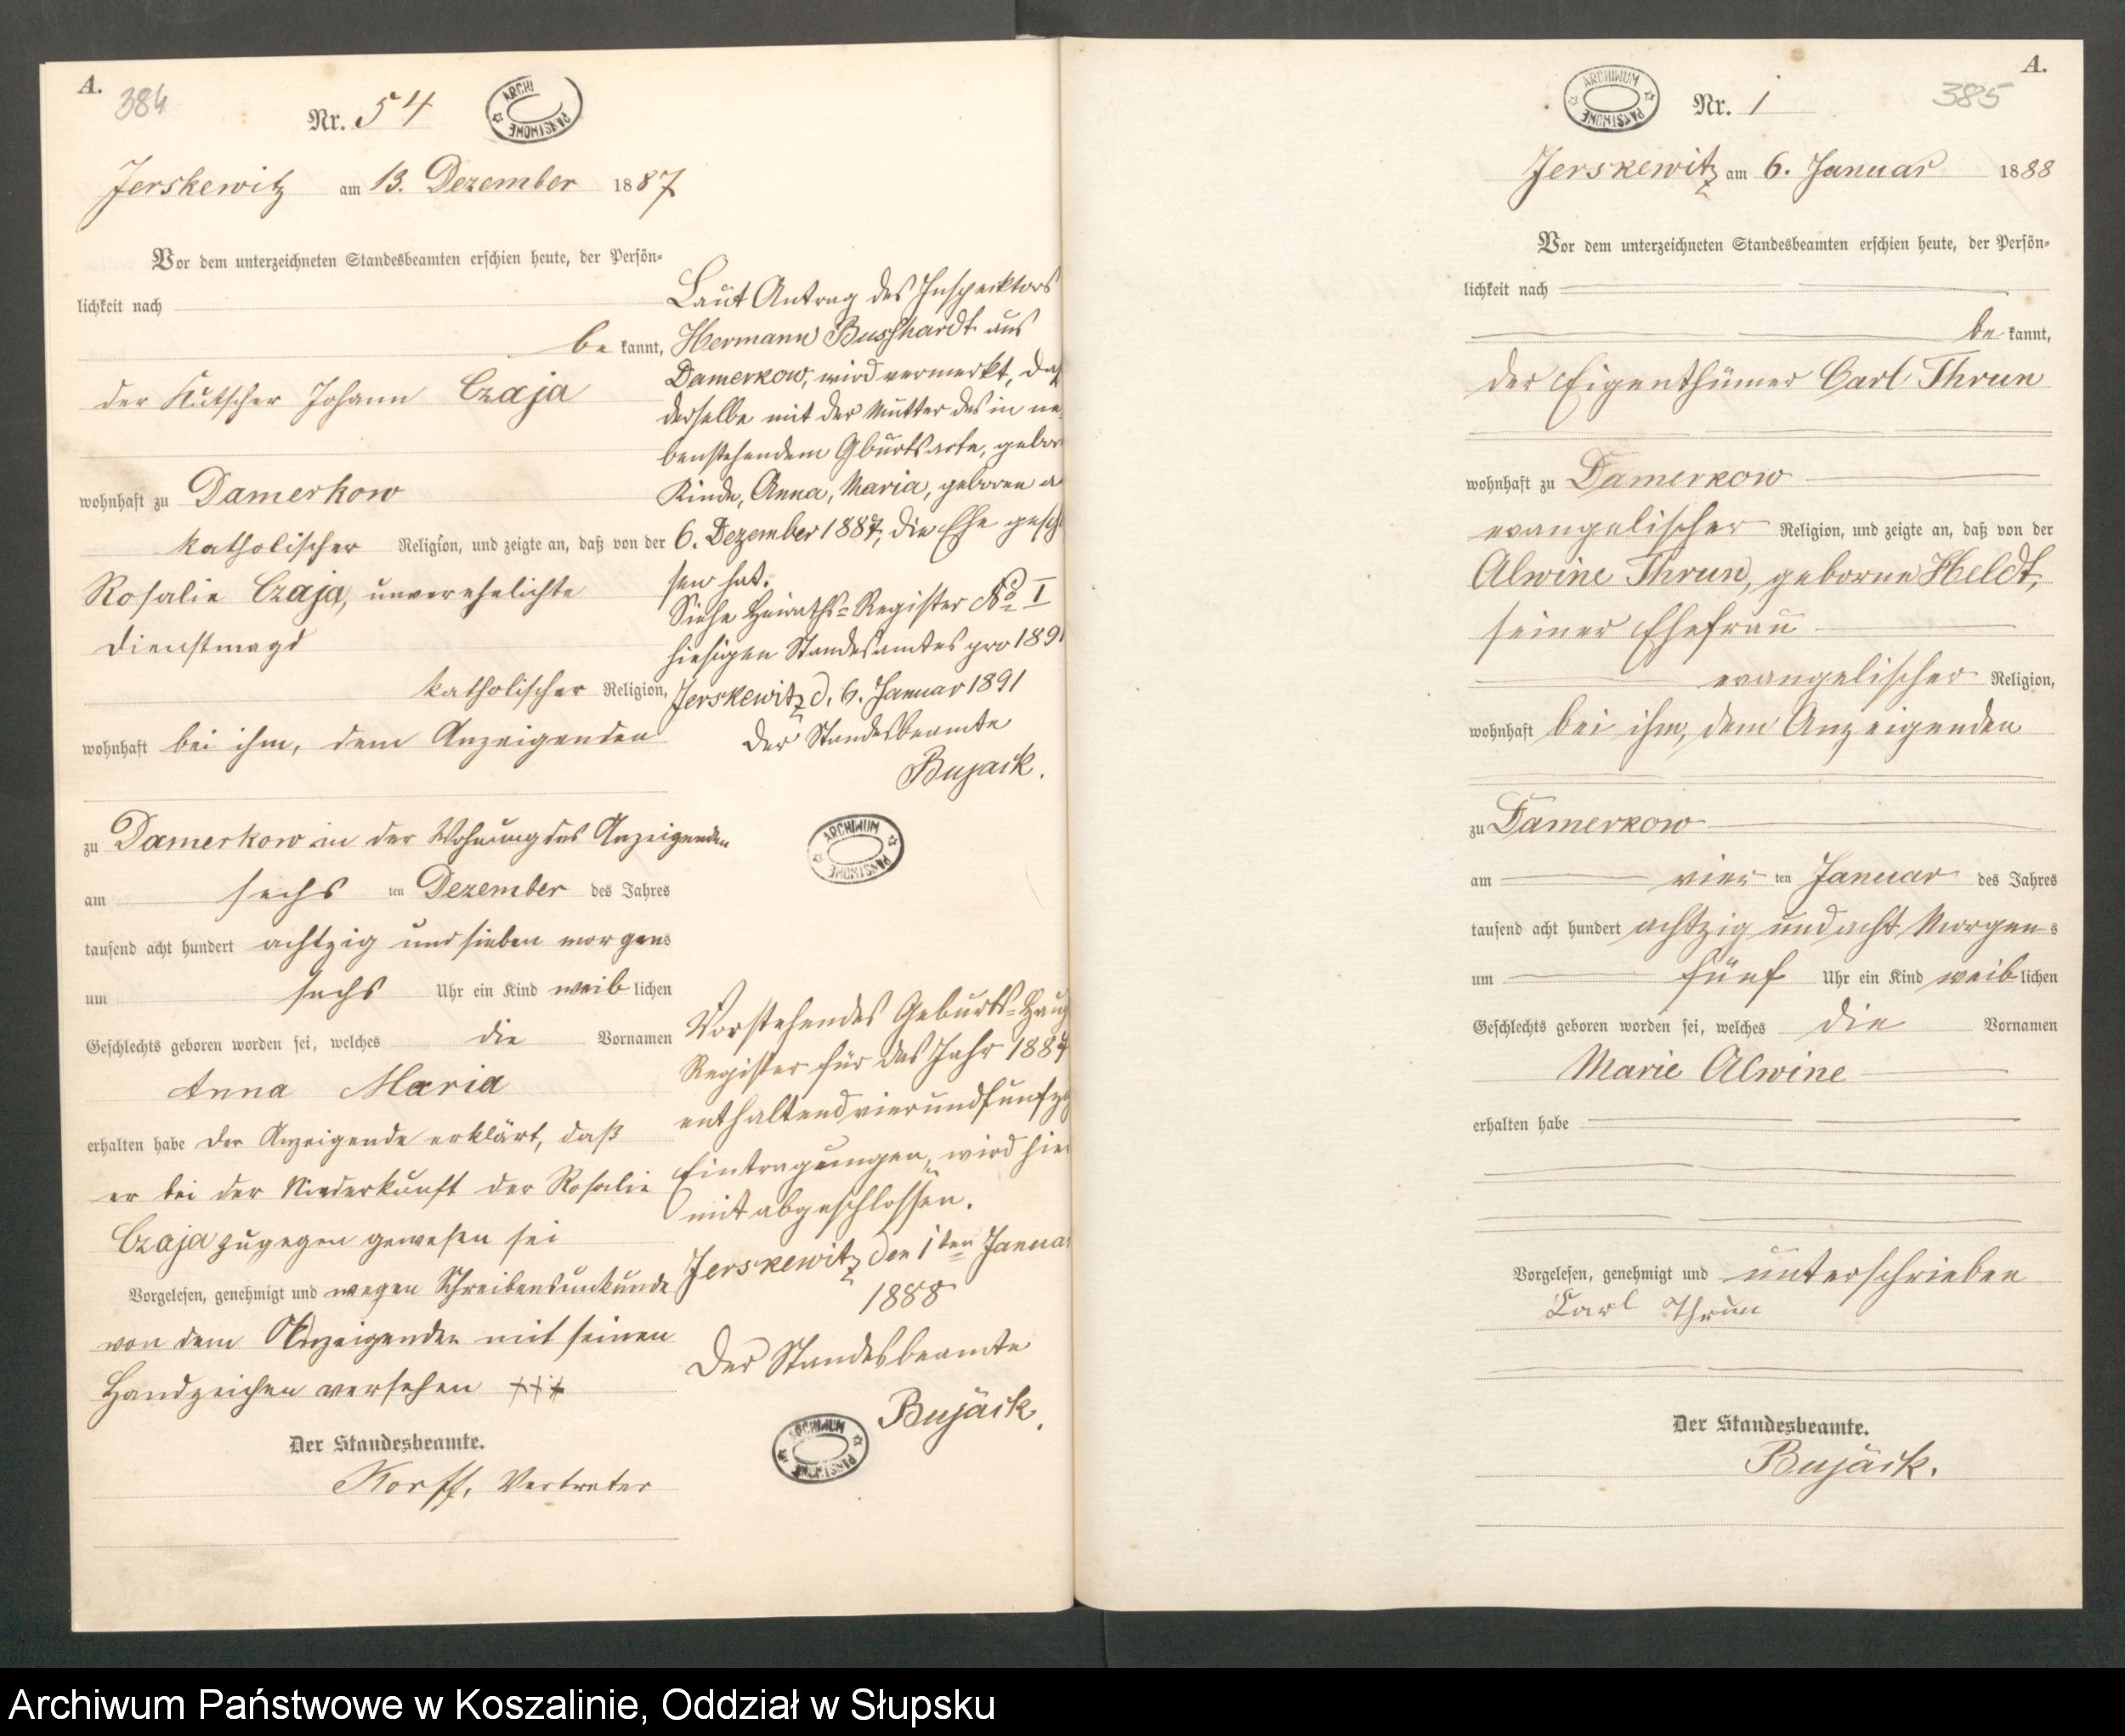 A.
384
Nr. 54
ARCHI PAŃSTWOWE
Jerskewitz am 13. Dezember 1887
Vor dem unterzeichneten Standesbeamten erschien heute, der Persön-
lichkeit nach
be kannt,
der Kutscher Johann Czaja
wohnhaft zu Damerkow
katholischer Religion, und zeigte an, daß von der
Rosalie Czaja, unverehelichte
Dienstmagd
katholischer Religion,
wohnhaft bei ihm, dem Anzeigenden
zu Damerkow in der Wohnung des Anzeigenden
am sechs ten Dezember des Jahres
tausend acht hundert achtzig und sieben morgens
um sechs Uhr ein Kind weib lichen
Geschlechts geboren worden sei, welches die Vornamen
Anna Maria
erhalten habe Der Anzeigende erklärt, daß
er bei der Niederkunft der Rosalie
Czaja zugegen gewesen sei
Vorgelesen, genehmigt und wegen Schreibensunkunde
von dem Anzeigenden mit seinen
Handzeichen versehen +++
Der Standesbeamte.
Korff, Vertreter
Laut Antrag des Inspecktors
Hermann Busshardt aus
Damerkow, wird vermerkt, daß
derselbe mit der Mutter des in ne
benstehendem Gburtsacte, gebor
Kinde, Anna, Maria, geboren a
6. Dezember 1887, die Ehe geschl
sen hat.
Siehe Heiraths-Register No I
hiesigen Standesamtes pro 1891
Jerskewitz d. 6. Januar 1891
Der Standesbeamte
Bujack.
ARCHIWUM PAŃSTWOWE
Vorstehendes Geburts-Haup
Register für das Jahr 1887
enthaltend vierundfunfzig
Eintragungen, wird hier
mit abgeschlossen.
Jerskewitz den 1ten Januar
1888
Der Standesbeamte
Bujäck.
ARCHIWUM PAŃSTWOWE
A.
385
ARCHIWUM PAŃSTWOWE
Nr. 1
Jerskewitz am 6. Januar 1888
Vor dem unterzeichneten Standesbeamten erschien heute, der Persön-
lichkeit nach
be kannt,
der Eigenthümer Carl Thrun
wohnhaft zu Damerkow
evangelischer Religion, und zeigte an, daß von der
Alwine Thrun, geborne Heldt,
seiner Ehefrau
evangelischer Religion,
wohnhaft bei ihm, dem Anzeigenden
zu Damerkow
am vier ten Januar des Jahres
tausend acht hundert achtzig und acht Morgens
um fünf Uhr ein Kind weib lichen
Geschlechts geboren worden sei, welches die Vornamen
Marie Alwine
erhalten habe
Vorgelesen, genehmigt und unterschrieben
Carl Thrun
Der Standesbeamte.
Bujäck.
Archiwum Państwowe w Koszalinie, Oddział w Słupsku